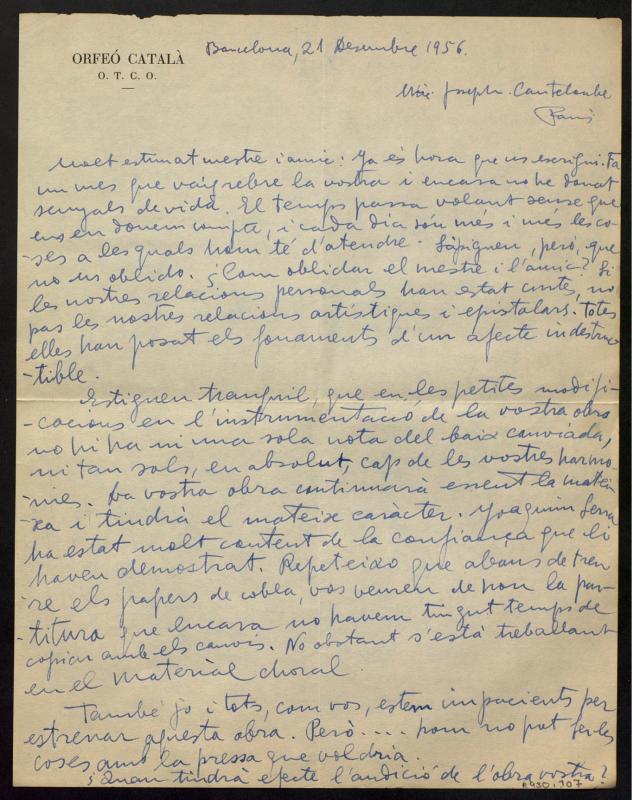 ORFEÓ CATALÀ
O. T. C. O.
Barcelona, 21 Desembre 1956.
Joseph Canteloube
Paris
Molt estimat mestre i amic: Ja és hora que us escrigui. Fa
un mes que vaig rebre la vostra i encara no he donat
senyals de vida. El temps passa volant sense que
ens en donem compte, i cada dia són més i més les co-
-ses a les quals hom té d'atendre. Sàpiguen, però, que
no us oblido. ¿Com oblidar el mestre i l'amic? Si
les nostres relacions personals han estat curtes, no
pas les nostres relacions artístiques i epistolars. Totes
elles han posat els fonaments d'un afecte indestruc
-tible.
Estiguen tranquil, que en les petites modifi-
-cacions en l'instrumentació de la vostra obra
no hi ha ni una sola nota del baix canviada,
ni tan sols, en absolut, cap de les vostres harmo-
-nies. La vostra obra continuarà essent la matei-
xa i tindrà el mateix caràcter. Joaquim Serra
ha estat molt content de la confiança que li
haveu demostrat. Repeteixo que abans de treu-
re els papers de cobla, vos veureu de nou la par-
-titura que encara no havem tingut temps de
copiar amb els canvis. No obstant s'està treballant
en el material choral.
També jo i tots, com vos, estem impacients per
estrenar aquesta obra. Però.... hom no pot fer les
coses amb la pressa que voldria.
¿Quan tindrà efecte l'audició de l'obra vostra?